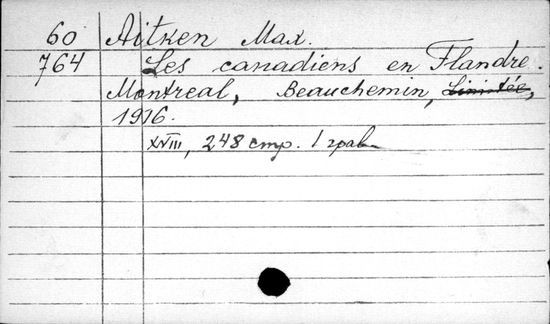 60 Aitken Max.
764 Les canadiens en Flandre.
Montreal, Beauchemin, Limitée,
1916.
XVIII, 248 стр. 1 грав.